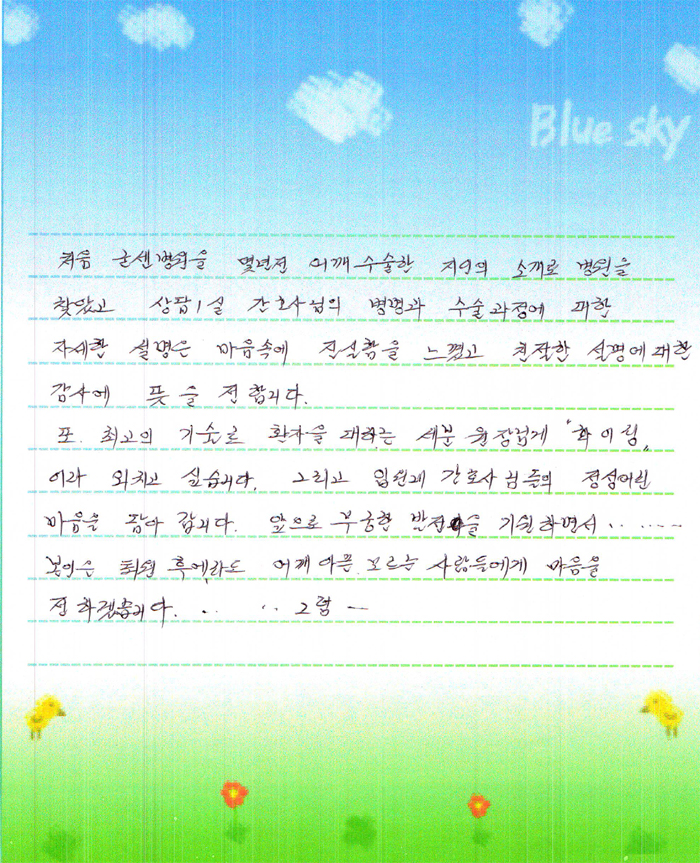 Blue sky
처음 굳센병원을 몇년전 어깨수술한 지인의 소개로 병원을
찾았고 상담1실 간호사님의 병명과 수술과정에 대한
자세한 설명은 마음속에 진실함을 느꼈고 친절한 설명에 대한
감사에 뜻을 전합니다.
또. 최고의 기술로 환자을 대하는 세분 원장님게 "화이팅"
이라 외치고 싶습니다. 그리고 입원계 간호사님들의 정성어린
마음을 담아 갑니다. 앞으로 무궁한 발전을 기원하면서.. .....
본인은 퇴원 후에라도 어깨아픈 모르는 사람들에게 마음을
전하겠습니다. .. .. 그럼 -